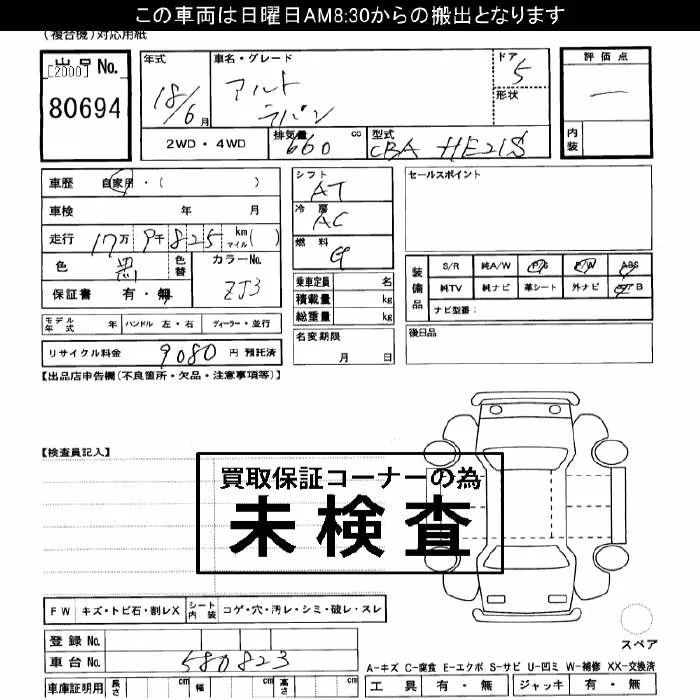 この車両は日曜日AM8:30からの搬出となります
(複合機)対応用紙
出品 No.
[2000]
80694
年式
18/6月
車名・グレード
アルト
ラパン
ドア
5
形状
評価点
内装
2WD・4WD
排気量 660 cc
型式 CBA HE21S
車歴 自家用・( )
車検 年 月
走行 17万 9千 825 km マイル ( )
色 黒 色替 カラーNo. ZJ3
保証書 有・無
シフト AT
冷房 AC
燃料 G
乗車定員 名
積載量 kg
総重量 kg
名変期限
月 日
セールスポイント
装備品
S/R 純A/W P/S P/W ABS
純TV 純ナビ 革シート 外ナビ
ナビ型番:
後日品
モデル年式 年 ハンドル 左・右 ディーラー・並行
リサイクル料金 9080 円 預託済
【出品店申告欄(不良箇所・欠品・注意事項等)】
【検査員記入】
買取保証コーナーの為
未検査
FW キズ・トビ石・割レX シート内装 コゲ・穴・汚レ・シミ・破レ・スレ
登録 No.
車台 No. 580823
車庫証明用 長さ cm 幅 cm 高さ cm
スペア
A-キズ C-腐食 E-エクボ S-サビ U-凹ミ W-補修 XX-交換済
工具 有・無 ジャッキ 有・無